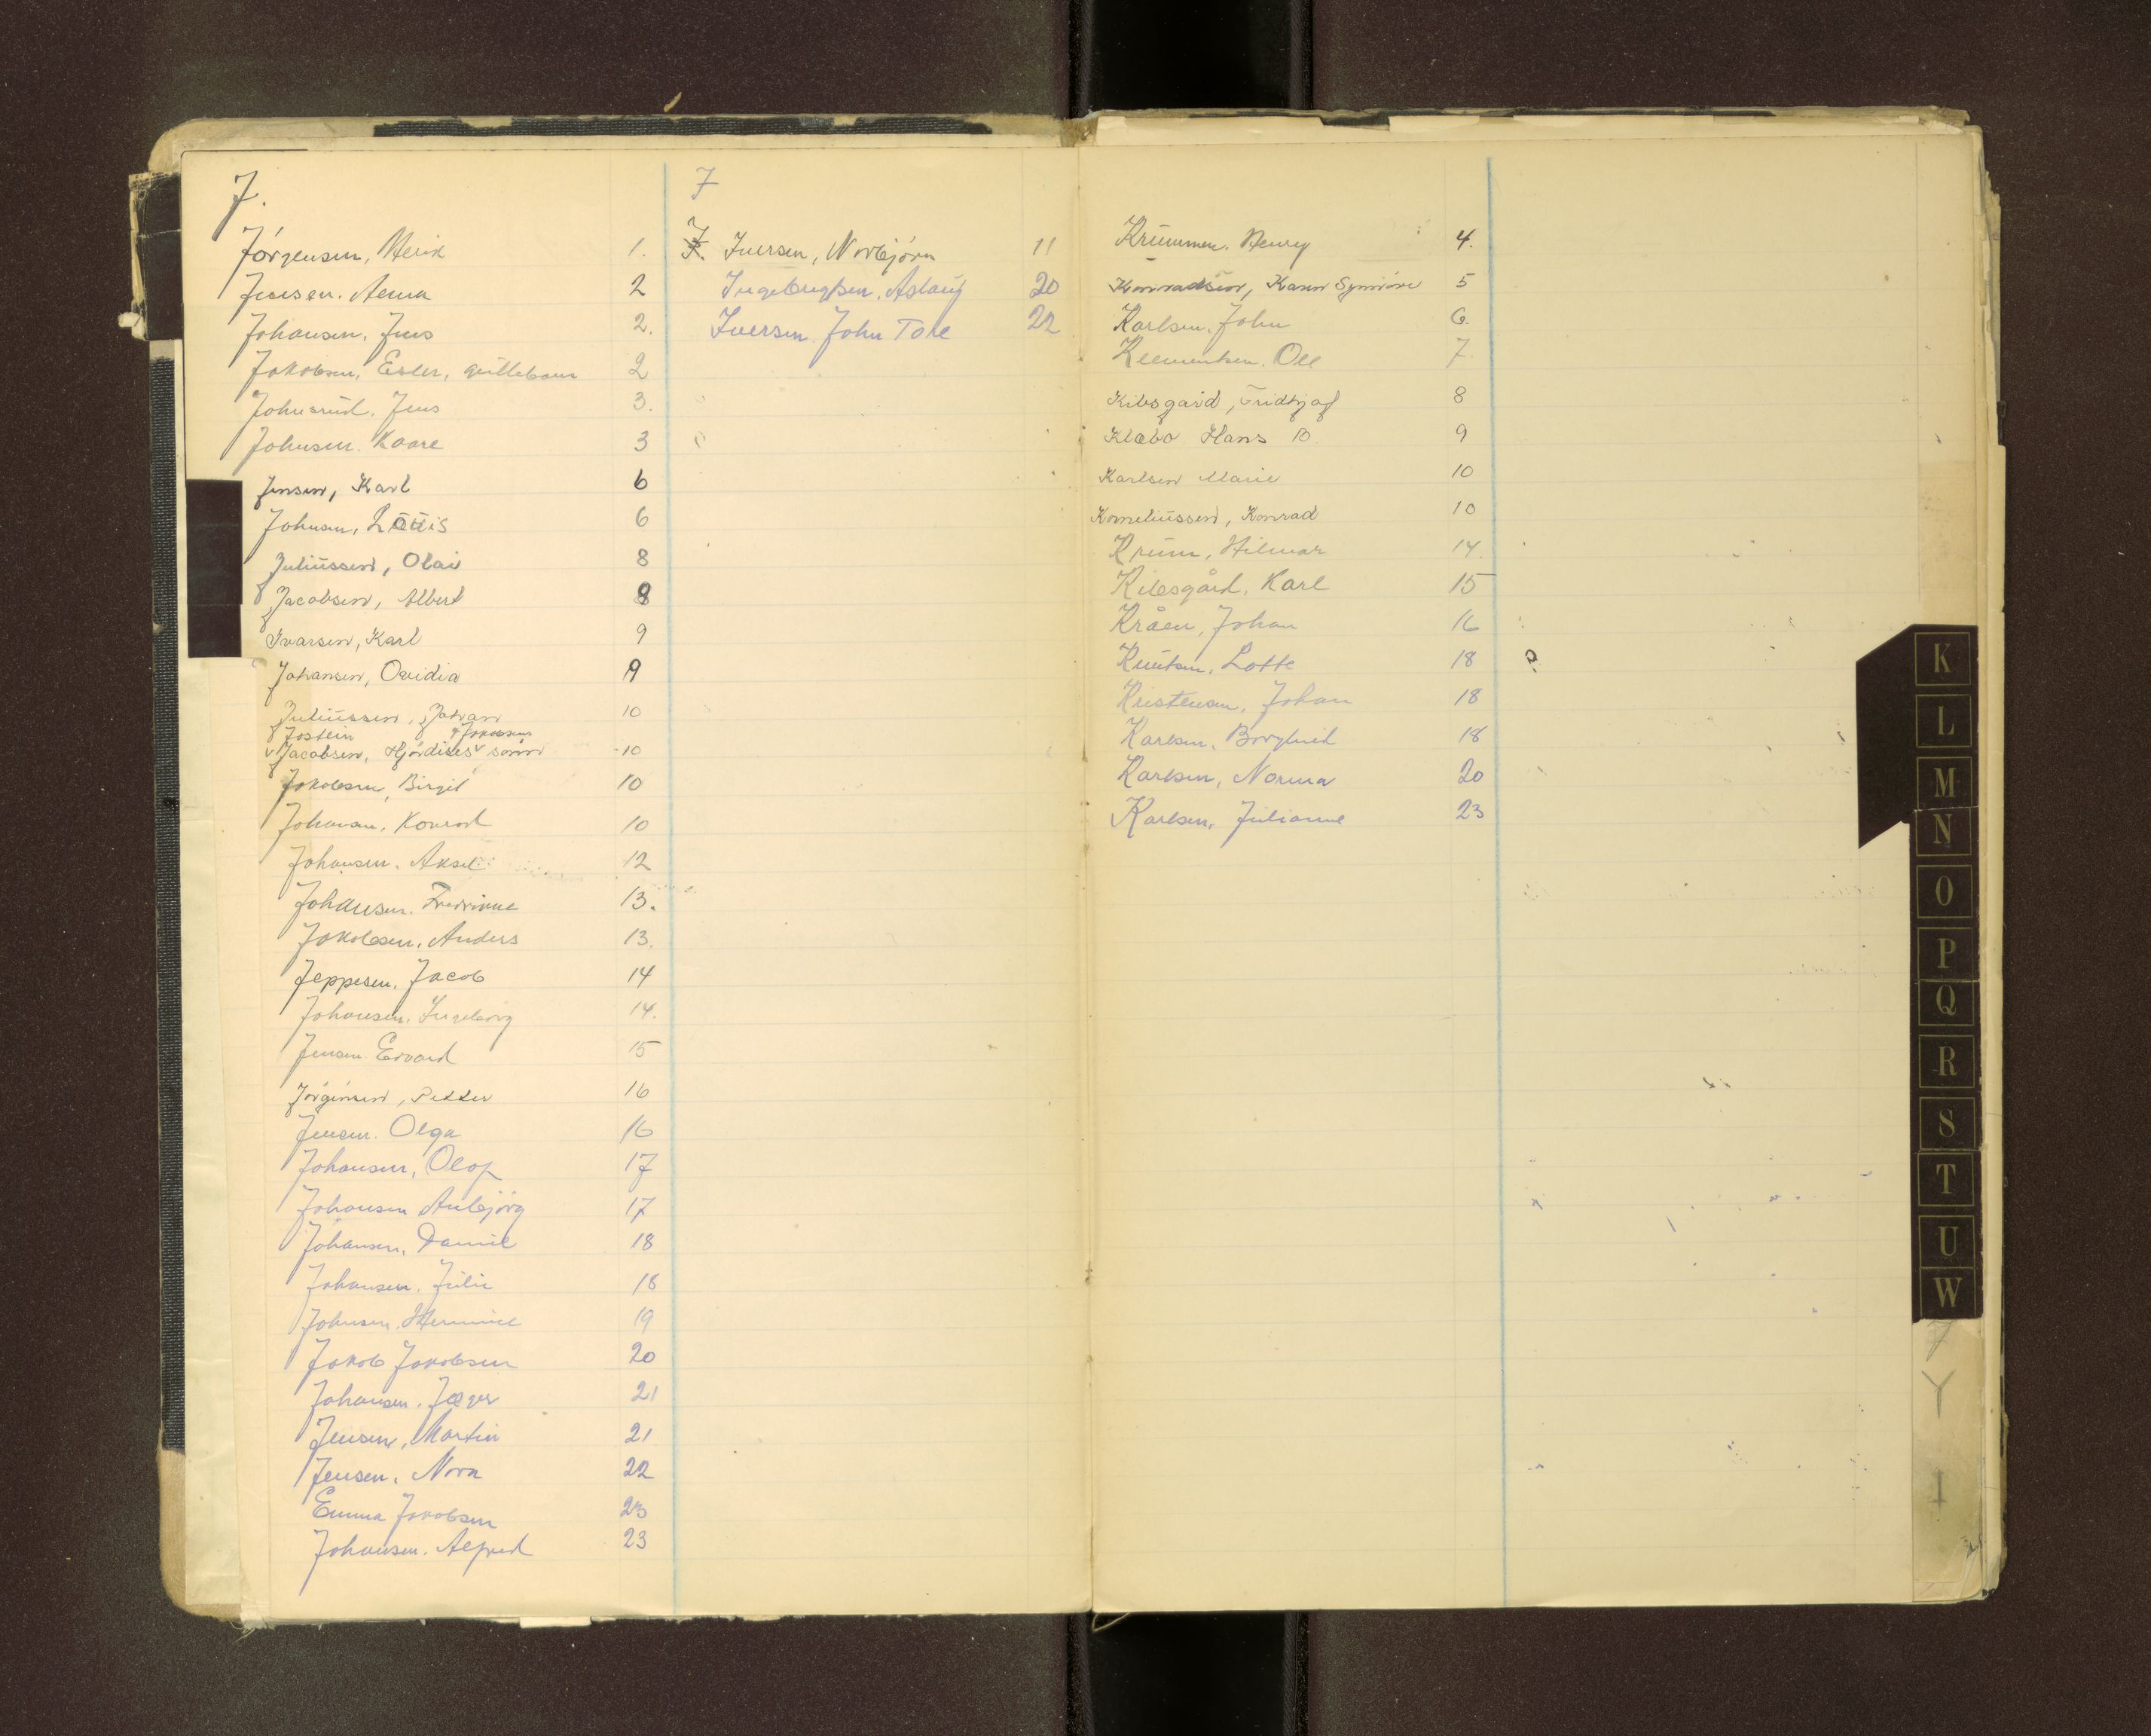 J.
Jörgensen, Meria 1.
Jensen. Anna 2
Johansen, Jens 2.
Jakobsen, Ester, guttebarn 2
Johnsrud. Jens 3.
Johnsen. Kaare 3
Jensen, Karl 6
Johnsen, Louis 6
Juliussen, Olai 8
Jacobsen, Albert 8
Ivarsen, Karl 9
Johansen, Ovidia 9
Juliussen, Johan 10
Jostein Jakobsen
Jacobsen, Hjördises sønn 10
Jakobsen, Birgit 10
Johansen, Konrad 10
Johansen. Aksel 12
Johansen. Fredrikke 13.
Jakobsen, Anders 13.
Jeppesen, Jacob 14
Johansen, Ingeborg 14.
Jensen Edvard 15
Jörgensen, Petter 16
Jensen. Olga 16
Johansen, Olaf 17
Johansen Anbjörg 17
Johansen, Daniel 18
Johansen. Julie 18
Johnsen. Hermine 19
Jakob Jakobsen 20
Johansen. Jæger 21
Jensen, Martin 21
Jensen, Nora 22
Emma Jakobsen 23
Johansen. Alfred 23
J
J. Iversen, Norbjörn 11
Ingebrigtsen, Aslaug 20
Iversen John Tore 22
Krümmen, Henry 4.
Konradsen, Karen Synnöve 5
Karlsen, John 6.
Klementsen. Ole 7.
Kibsgaard, Fridtjof 8
Klæbo Hans B. 9
Karlsen Marie 10
Korneliussen, Konrad 10
Krum, Hilmar 14.
Kibsgård, Karl 15
Kråen, Johan 16
Knutsen, Lotte 18 ?
Kristensen, Johan 18
Karlsen, Borghild 18
Karlsen, Norma 20
Karlsen, Julianne 23
K
L
M
N
O
P
Q
R
S
T
U
W
Y